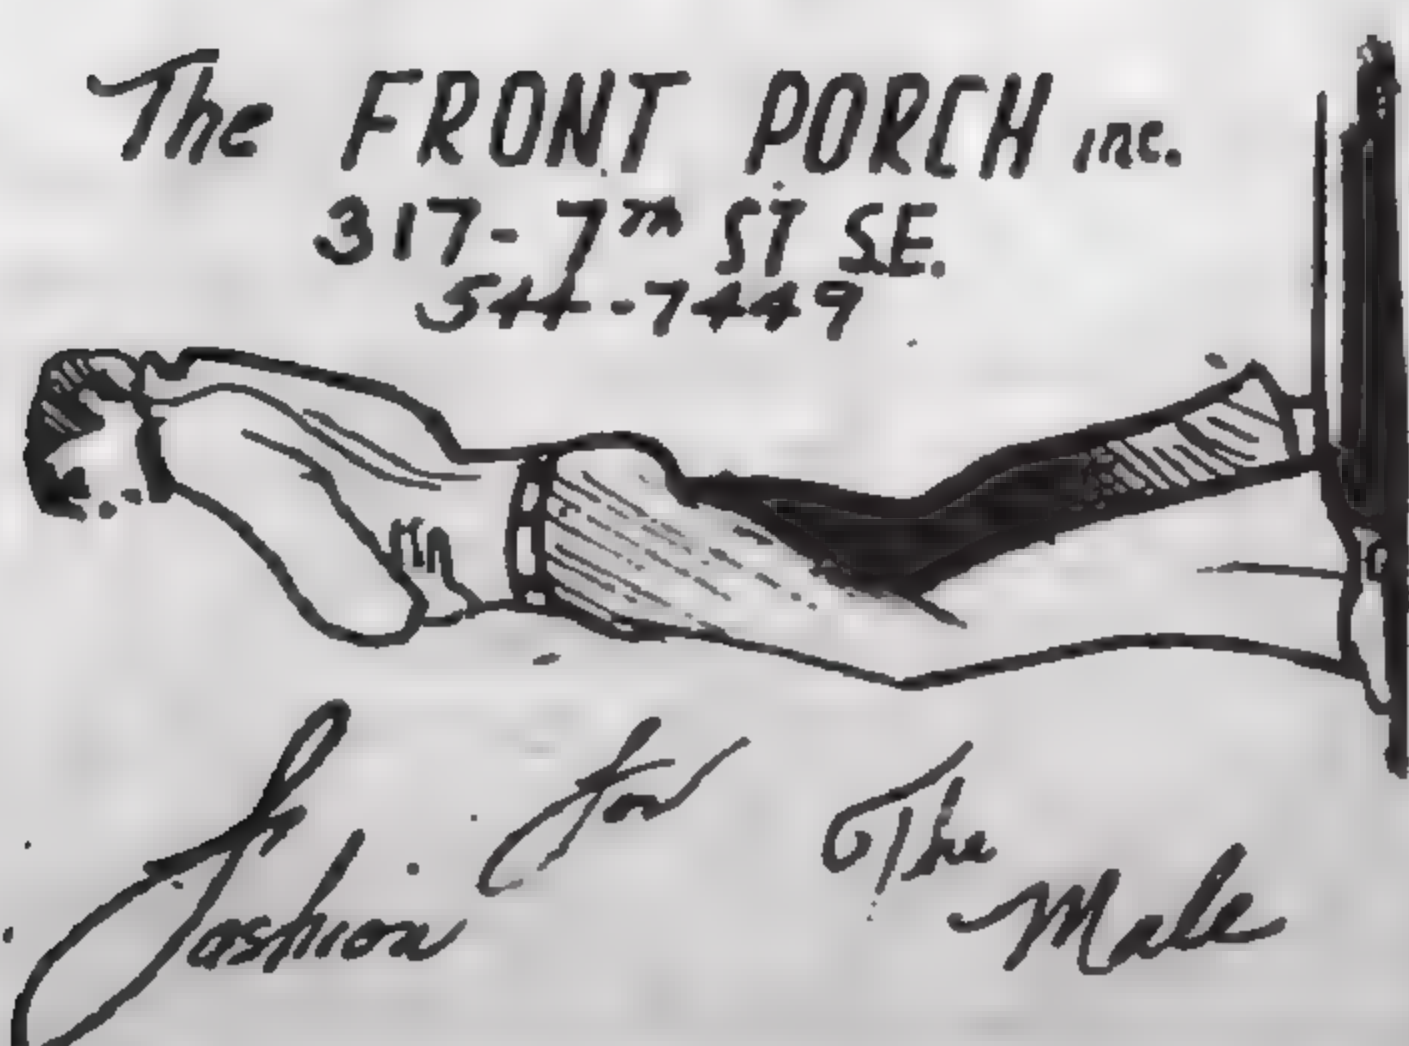 The FRONT PORCH inc.
317-7TH ST S.E.
544-7449
Fashion for The Male